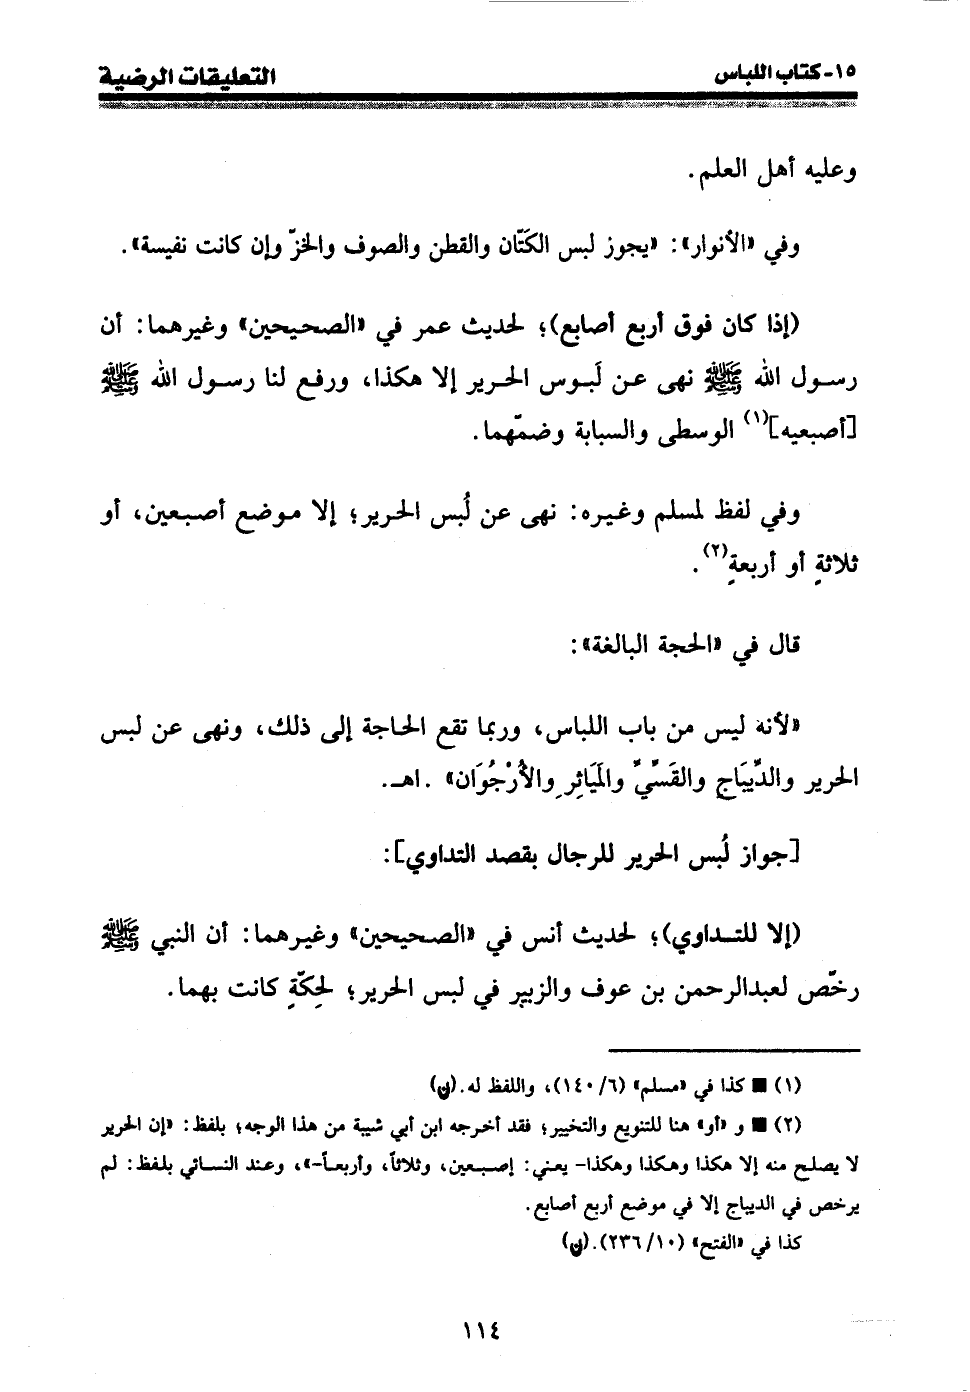 ١٥- كتاب اللباس
التعليقات الرضية
وعليه أهل العلم .
وفي «الأنوار» : «يجوز لبس الكتّان والقطن والصوف والخزّ وإن كانت نفيسة» .
(إذا كان فوق أربع أصابع)؛ لحديث عمر في «الصحيحين» وغيرهما : أن
رسول الله ﷺ نهى عن لَبوس الحرير إلا هكذا، ورفع لنا رسول الله ﷺ
[أصبعيه](١) الوسطى والسبابة وضمّهما.
وفي لفظ لمسلم وغيره : نهى عن لُبس الحرير؛ إلا موضع أصبعين، أو
ثلاثةٍ أو أربعةٍ(٢).
قال في «الحجة البالغة» :
«لأنه ليس من باب اللباس، وربما تقع الحاجة إلى ذلك، ونهى عن لبس
الحرير والدِّيبَاجِ والقَسِّيِّ والمَيَاثِرِ والأُرْجُوَان» . اهـ.
[جواز لُبس الحرير للرجال بقصد التداوي] :
(إلا للتداوي)؛ لحديث أنس في «الصحيحين» وغيرهما : أن النبي ﷺ
رخّص لعبدالرحمن بن عوف والزبير في لبس الحرير؛ لحِكّةٍ كانت بهما.
(١) ■ كذا في «مسلم» (٦/ ١٤٠)، واللفظ له. (ن)
(٢) ■ و «أو» هنا للتنويع والتخيير؛ فقد أخرجه ابن أبي شيبة من هذا الوجه؛ بلفظ : «إن الحرير
لا يصلح منه إلا هكذا وهكذا وهكذا- يعني : إصبعين، وثلاثاً، وأربعاً-»، وعند النسائي بلفظ : لم
يرخص في الديباج إلا في موضع أربع أصابع.
كذا في «الفتح» (١٠/ ٢٣٦). (ن)
١١٤